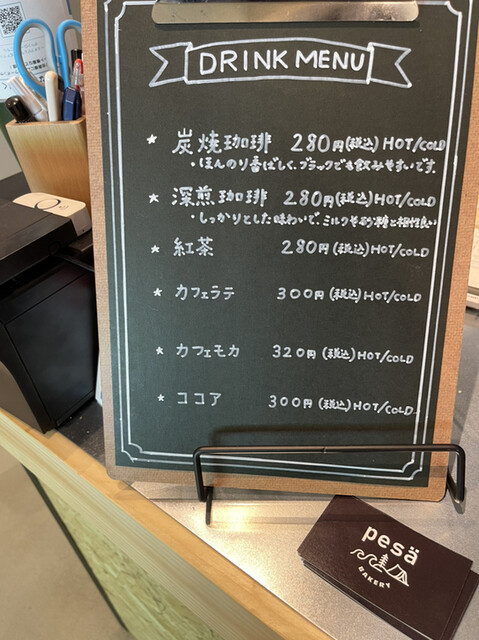 DRINK MENU
* 炭焼珈琲 280円(税込) HOT/COLD
・ほんのり香ばしく、ブラックでも飲みやすいです。
* 深煎珈琲 280円(税込) HOT/COLD
・しっかりとした味わいで、ミルクやお砂糖と相性良い
* 紅茶 280円(税込) HOT/COLD
* カフェラテ 300円(税込) HOT/COLD
* カフェモカ 320円(税込) HOT/COLD
* ココア 300円(税込) HOT/COLD
pesä
BAKERY